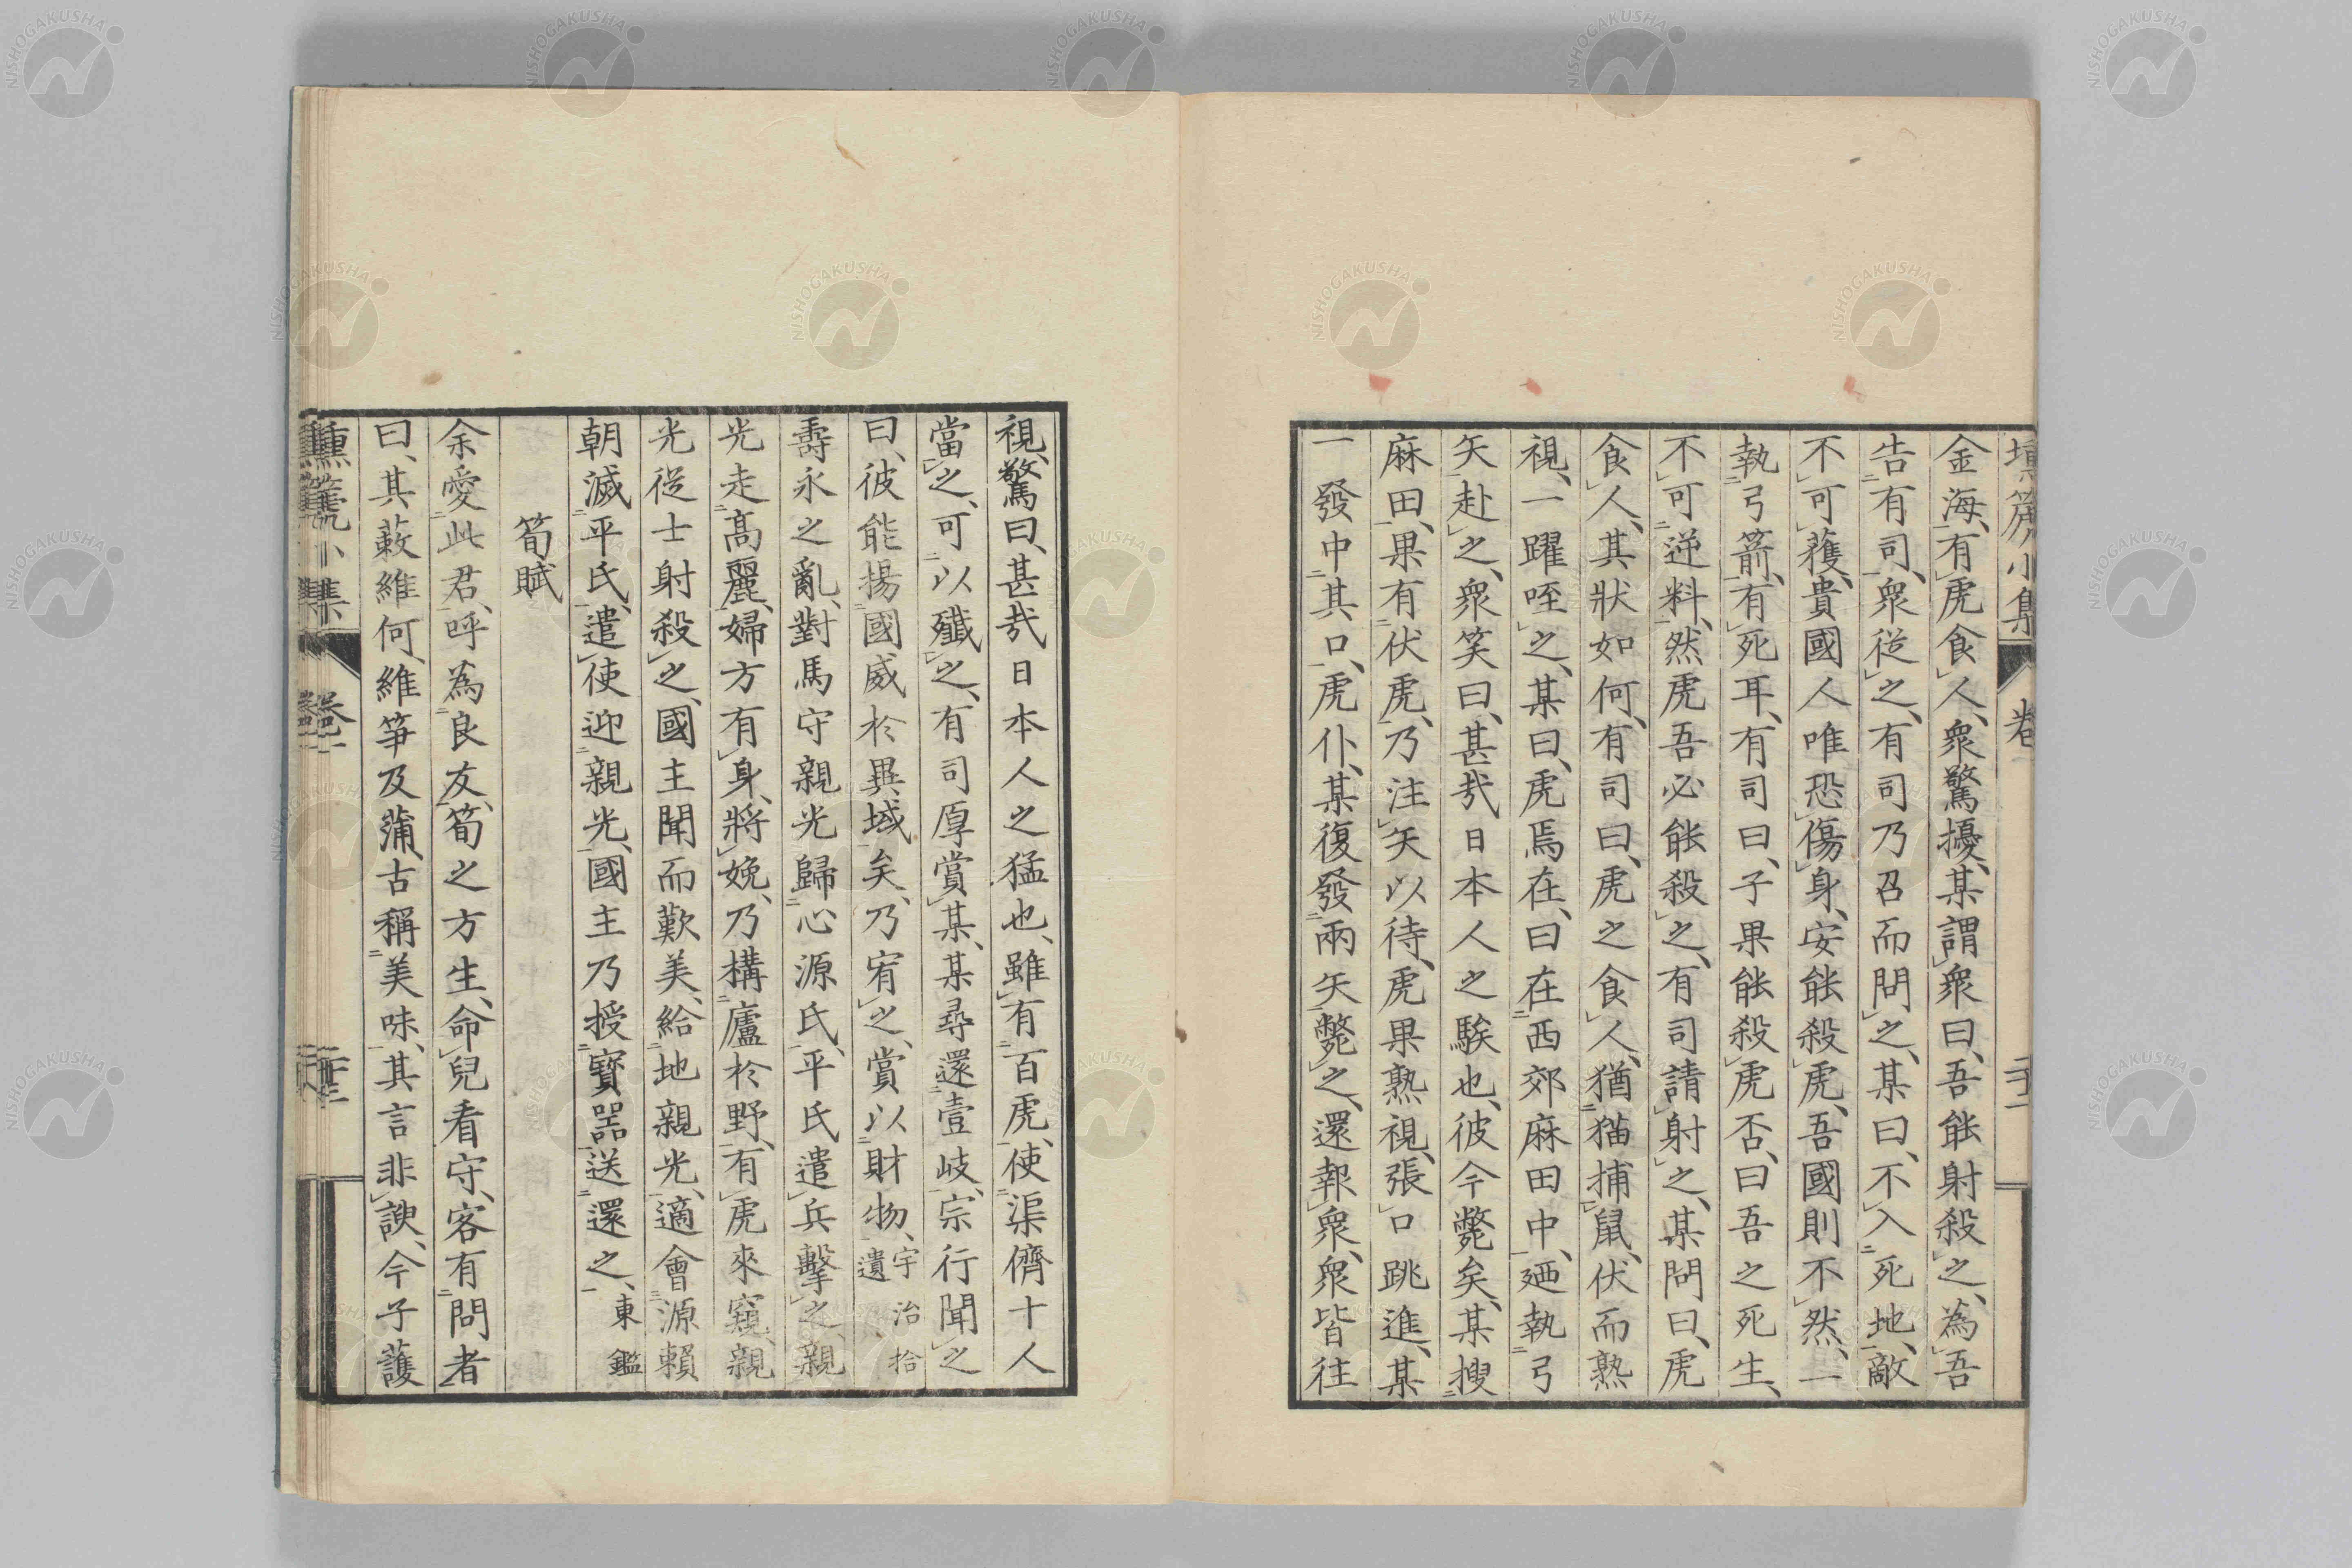 金海、有虎食人、衆驚擾、某謂衆曰、吾能射殺之、為吾
告有司、衆從之、有司乃召而問之、某曰、不入死地、敵
不可獲、貴國人唯恐傷身、安能殺虎、吾國則不然、一
執弓箭、有死耳、有司曰、子果能殺虎否、曰吾之死生、
不可逆料、然虎吾必能殺之、有司請射之、某問曰、虎
食人、其狀如何、有司曰、虎之食人、猶猫捕鼠、伏而熟
視、一躍咥之、某曰、虎焉在、曰在西郊麻田中、廼執弓
矢赴之、衆笑曰、甚哉日本人之騃也、彼今斃矣、某搜
麻田、果有伏虎、乃注矢以待、虎果熟視、張口跳進、某
一發中其口、虎仆、某復發兩矢斃之、還報衆、衆皆往
視、驚曰、甚哉日本人之猛也、雖有百虎、使渠儕十人
當之、可以殲之、有司厚賞某、某尋還壹岐、宗行聞之
曰、彼能揚國威於異域矣、乃宥之、賞以財物、宇治拾遺、
壽永之亂、對馬守親光歸心源氏、平氏遣兵擊之、親
光走高麗、婦方有身、將娩、乃構廬於野、有虎來窺、親
光從士射殺之、國主聞而歎美、給地親光、適會源賴
朝滅平氏、遣使迎親光、國主乃授寶器送還之、東鑑
筍賦
余愛此君、呼為良友、筍之方生、命兒看守、客有問者
曰、其蔌維何、維筍及蒲、古稱美味、其言非諛、今子護
塤篪小集
卷
NISHOGAKUSHA